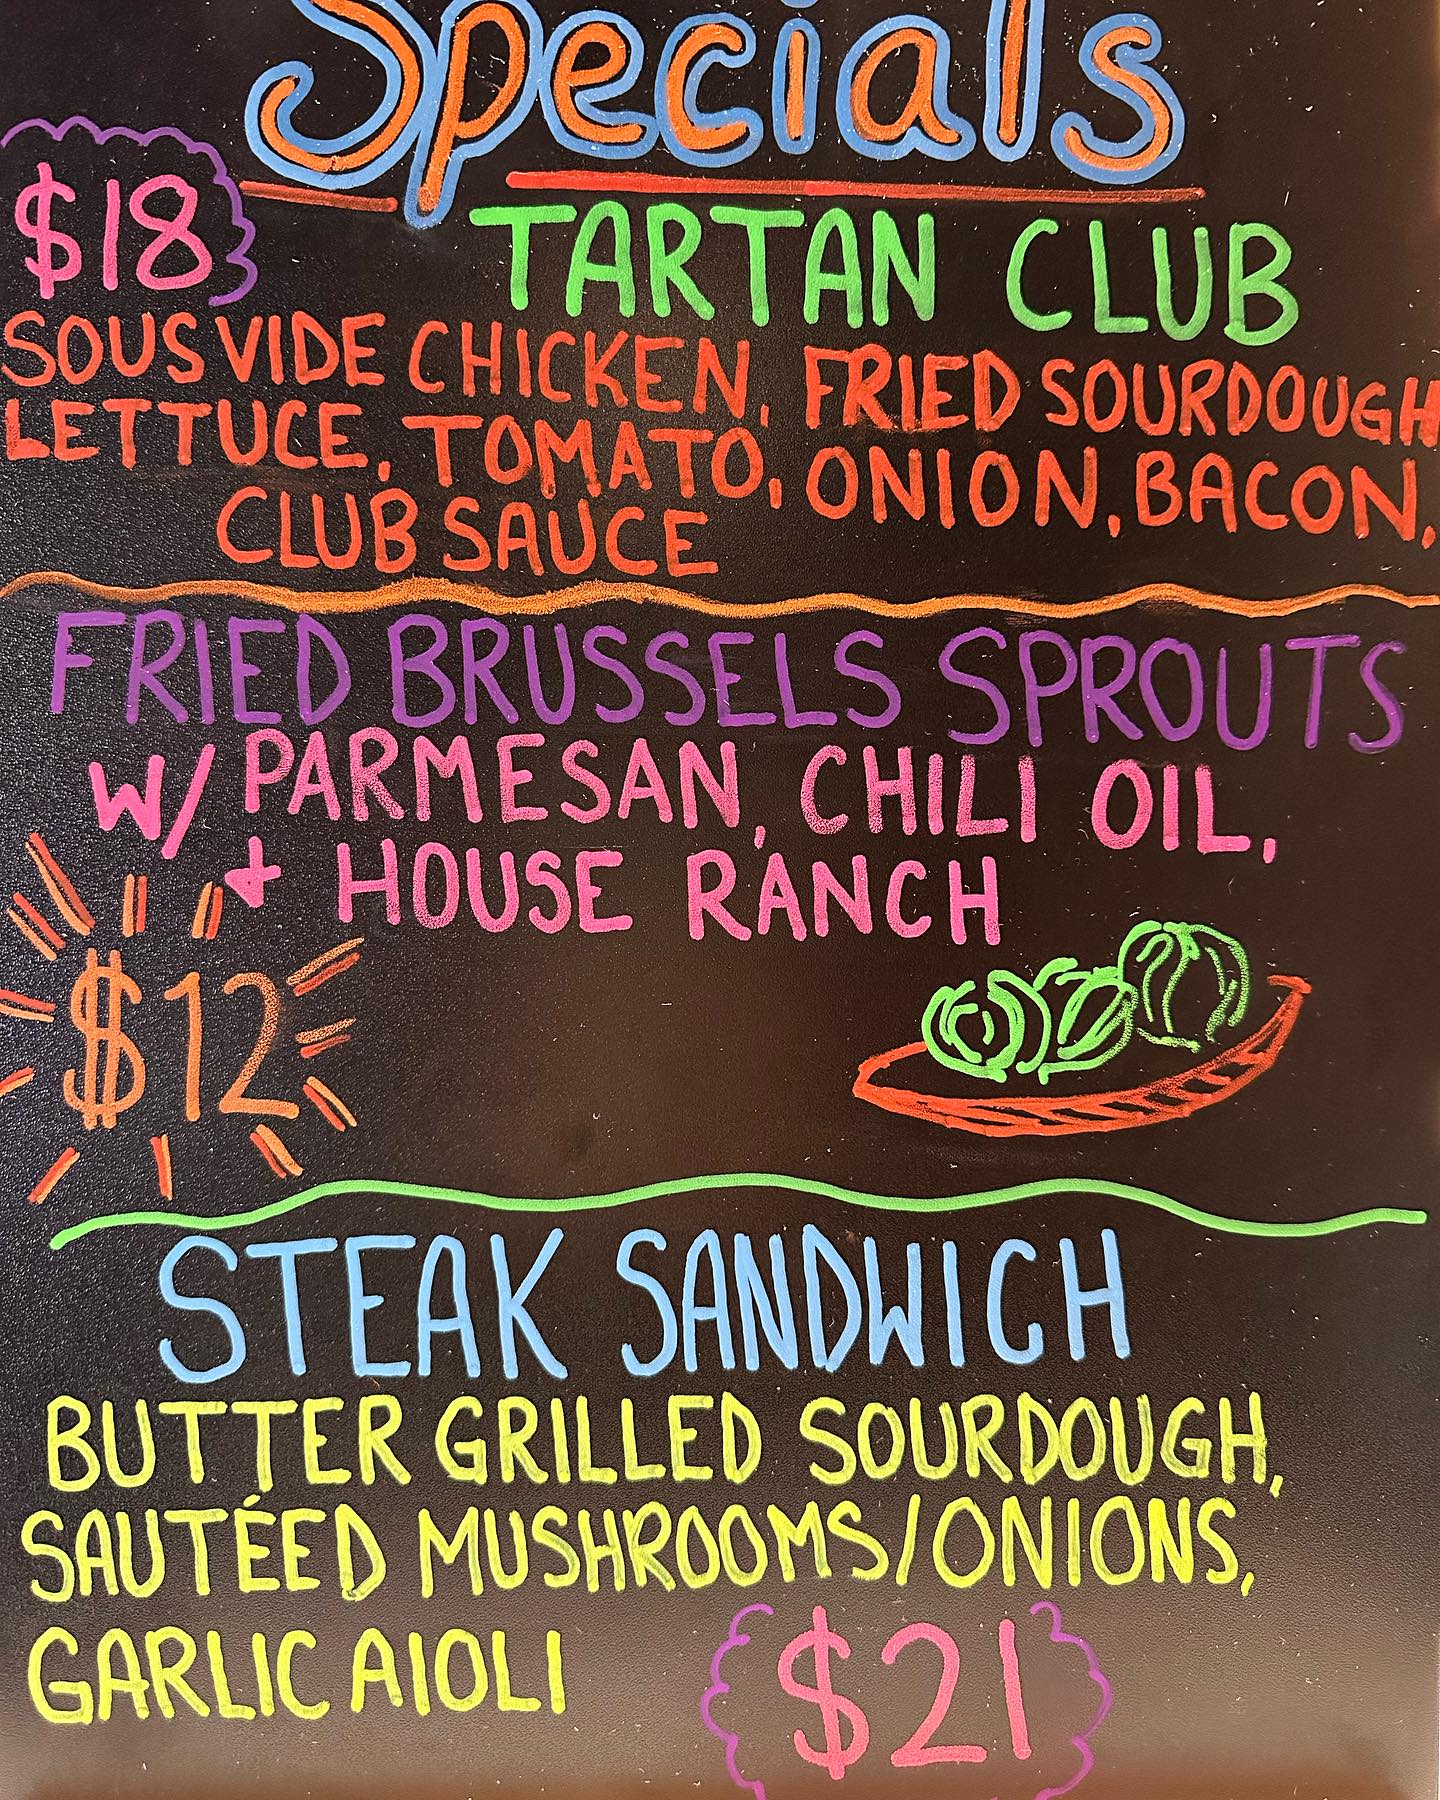 Specials
$18
TARTAN CLUB
SOUS VIDE CHICKEN, FRIED SOURDOUGH
LETTUCE, TOMATO, ONION, BACON,
CLUB SAUCE
FRIED BRUSSELS SPROUTS
W/ PARMESAN, CHILI OIL,
+ HOUSE RANCH
$12
STEAK SANDWICH
BUTTER GRILLED SOURDOUGH,
SAUTÉED MUSHROOMS/ONIONS,
GARLIC AIOLI
$21